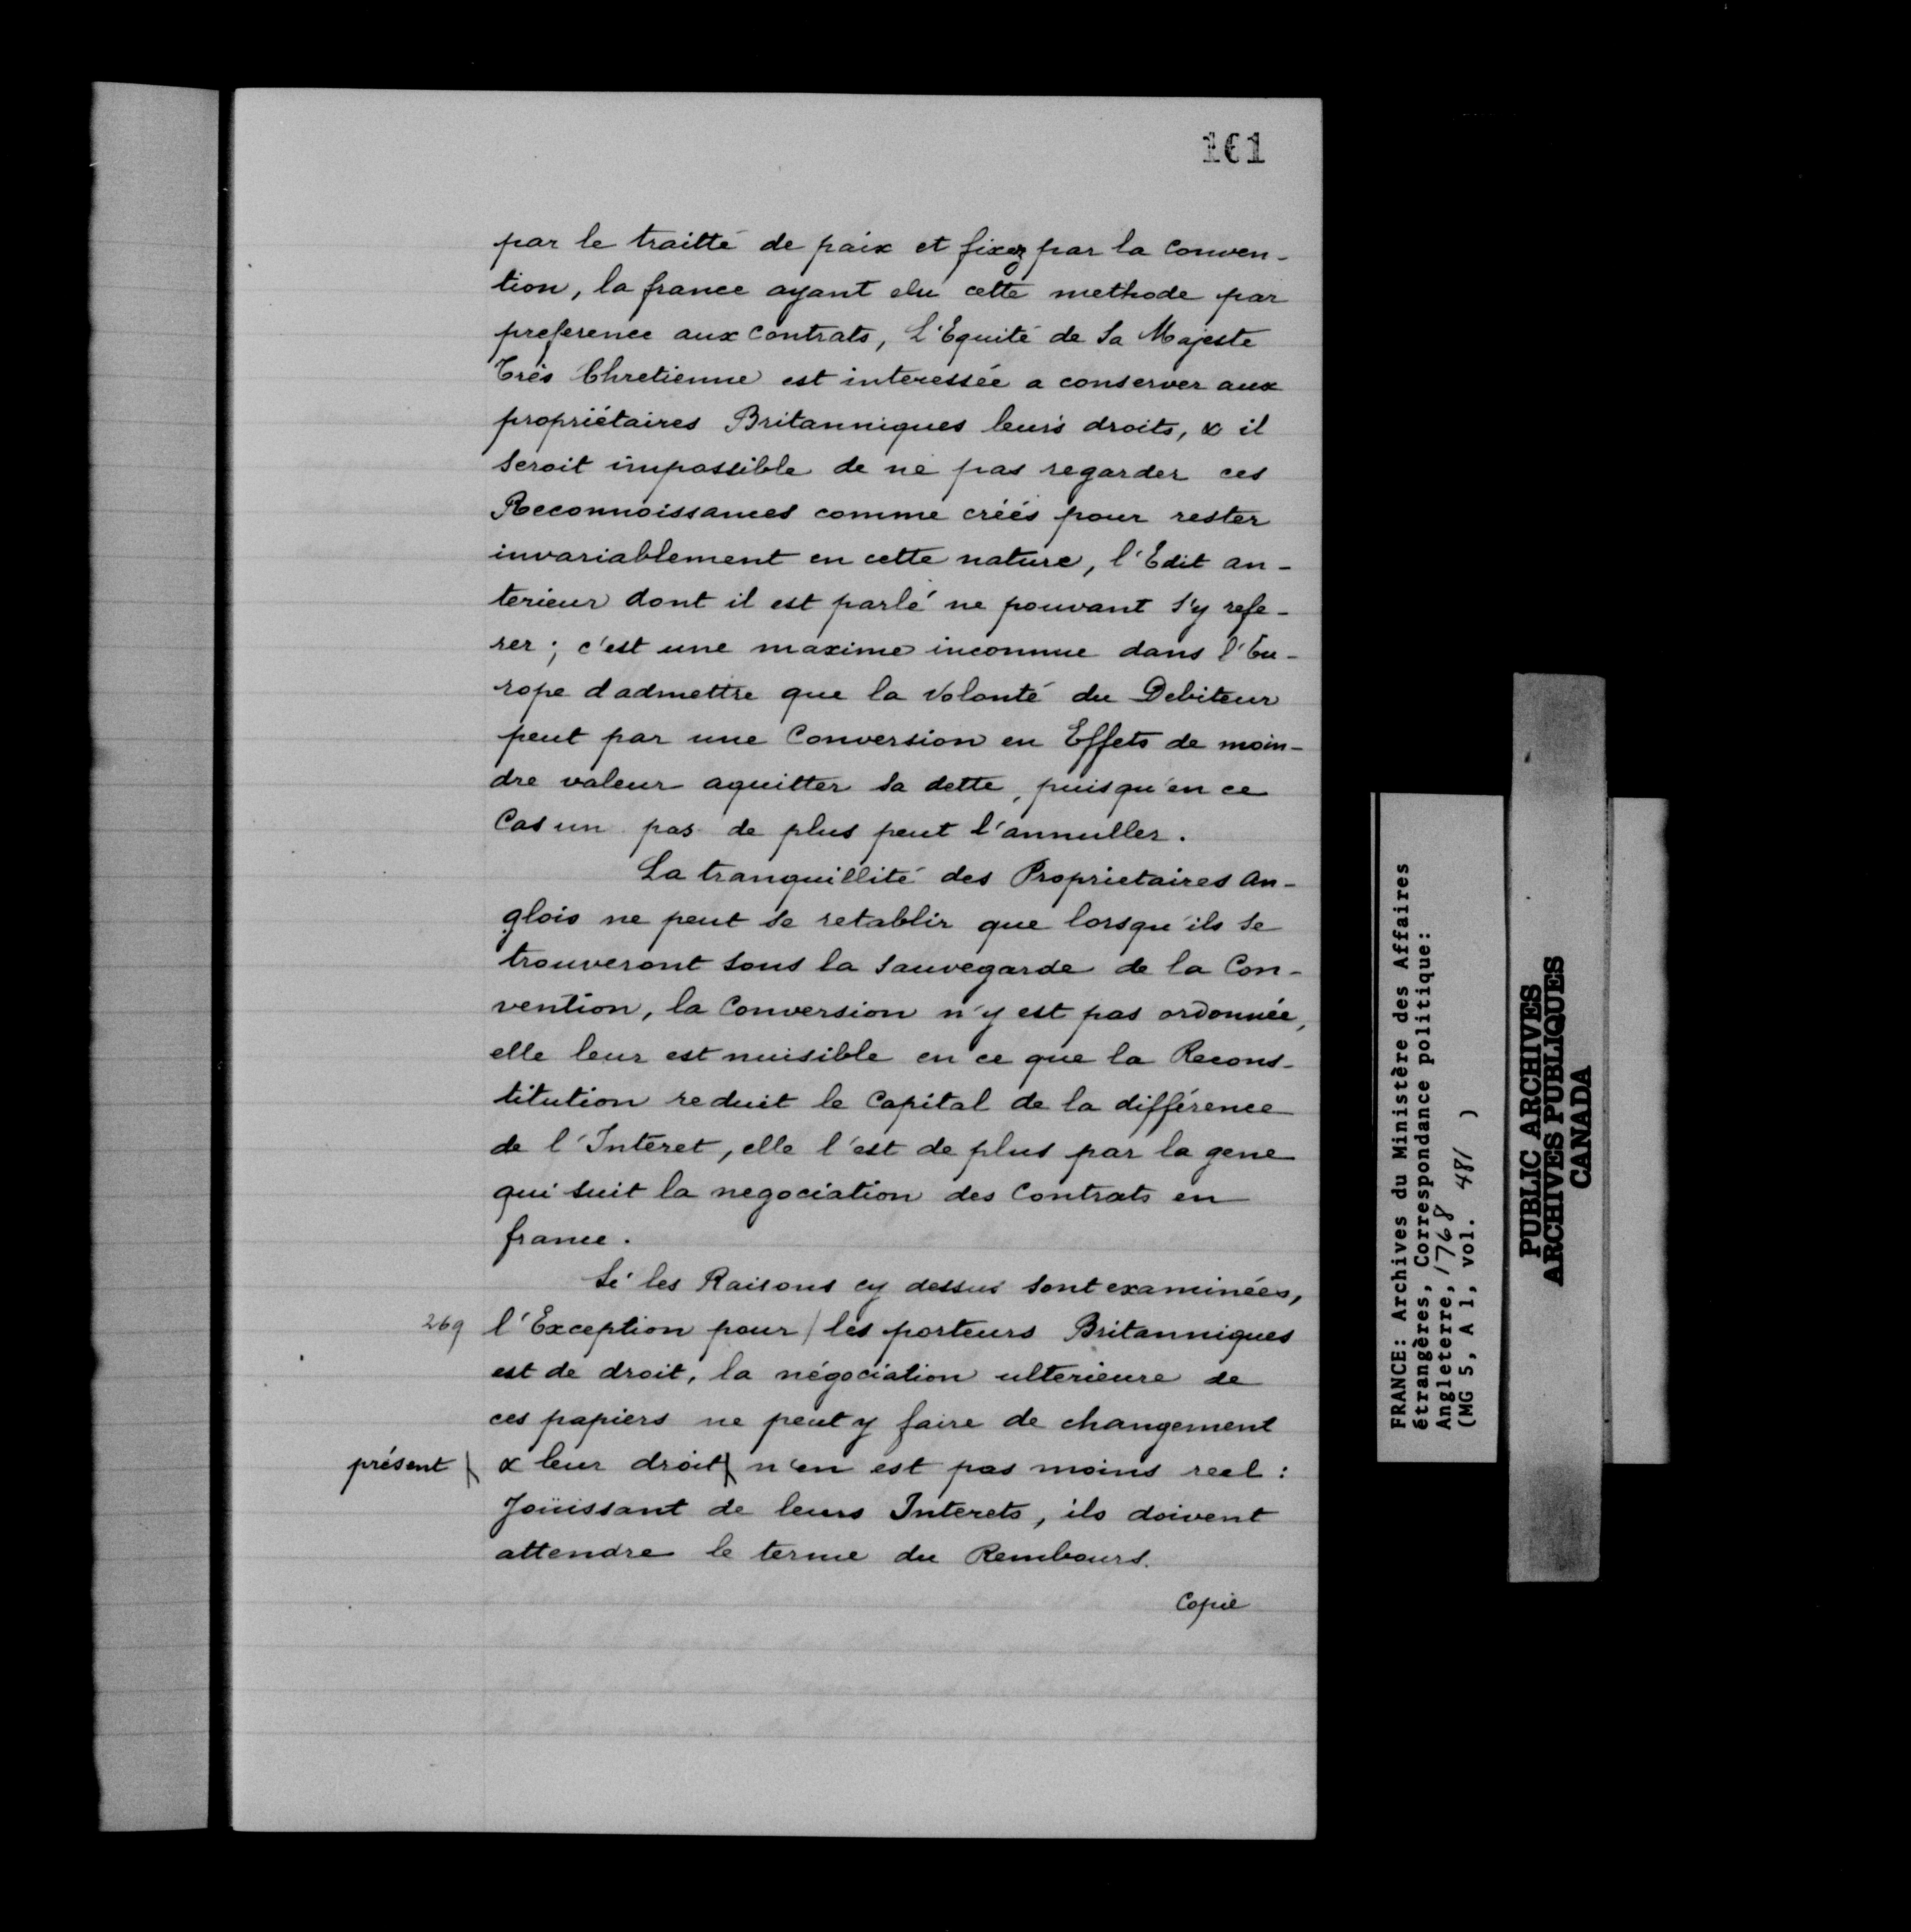 161
par le traitté de paix et fixez par la Conven-
tion, la france ayant elu cette methode par
preference aux Contrats, L'Equité de Sa Majeste
Très Chretienne est interessée a conserver aux
propriétaires Britanniques leurs droits, & il
seroit impossible de ne pas regarder ces
Reconnoissances comme créés pour rester
invariablement en cette nature, l'Edit an-
terieur dont il est parlé ne pouvant s'y refe-
rer; c'est une maxime inconnue dans l'Eu-
rope dadmettre que la Volonté du Debiteur
peut par une Conversion en Effets de moin-
dre valeur aquitter sa dette, puisqu'en ce
Cas un pas de plus peut l'annuller.
La tranquillité des Proprietaires An-
glois ne peut se retablir que lorsqu'ils se
trouveront sous la Sauvegarde de la Con-
vention, la Conversion n'y est pas ordonnée,
elle leur est nuisible en ce que la Recons-
titution reduit le Capital de la différence
de l'Intéret, elle l'est de plus par la gene
qui suit la negociation des Contrats en
france.
Si les Raisons cy dessus sont examinées,
269 l'Exception pour / les porteurs Britanniques
est de droit, la négociation ulterieure de
ces papiers ne peut y faire de changement
présent & leur droit n'en est pas moins reel :
Joüissant de leurs Interets, ils doivent
attendre le terme du Rembours.
Copie
FRANCE: Archives du Ministère des Affaires
étrangères, Correspondance politique:
Angleterre, 1768
(MG 5, A 1, vol. 481 )
PUBLIC ARCHIVES
ARCHIVES PUBLIQUES
CANADA